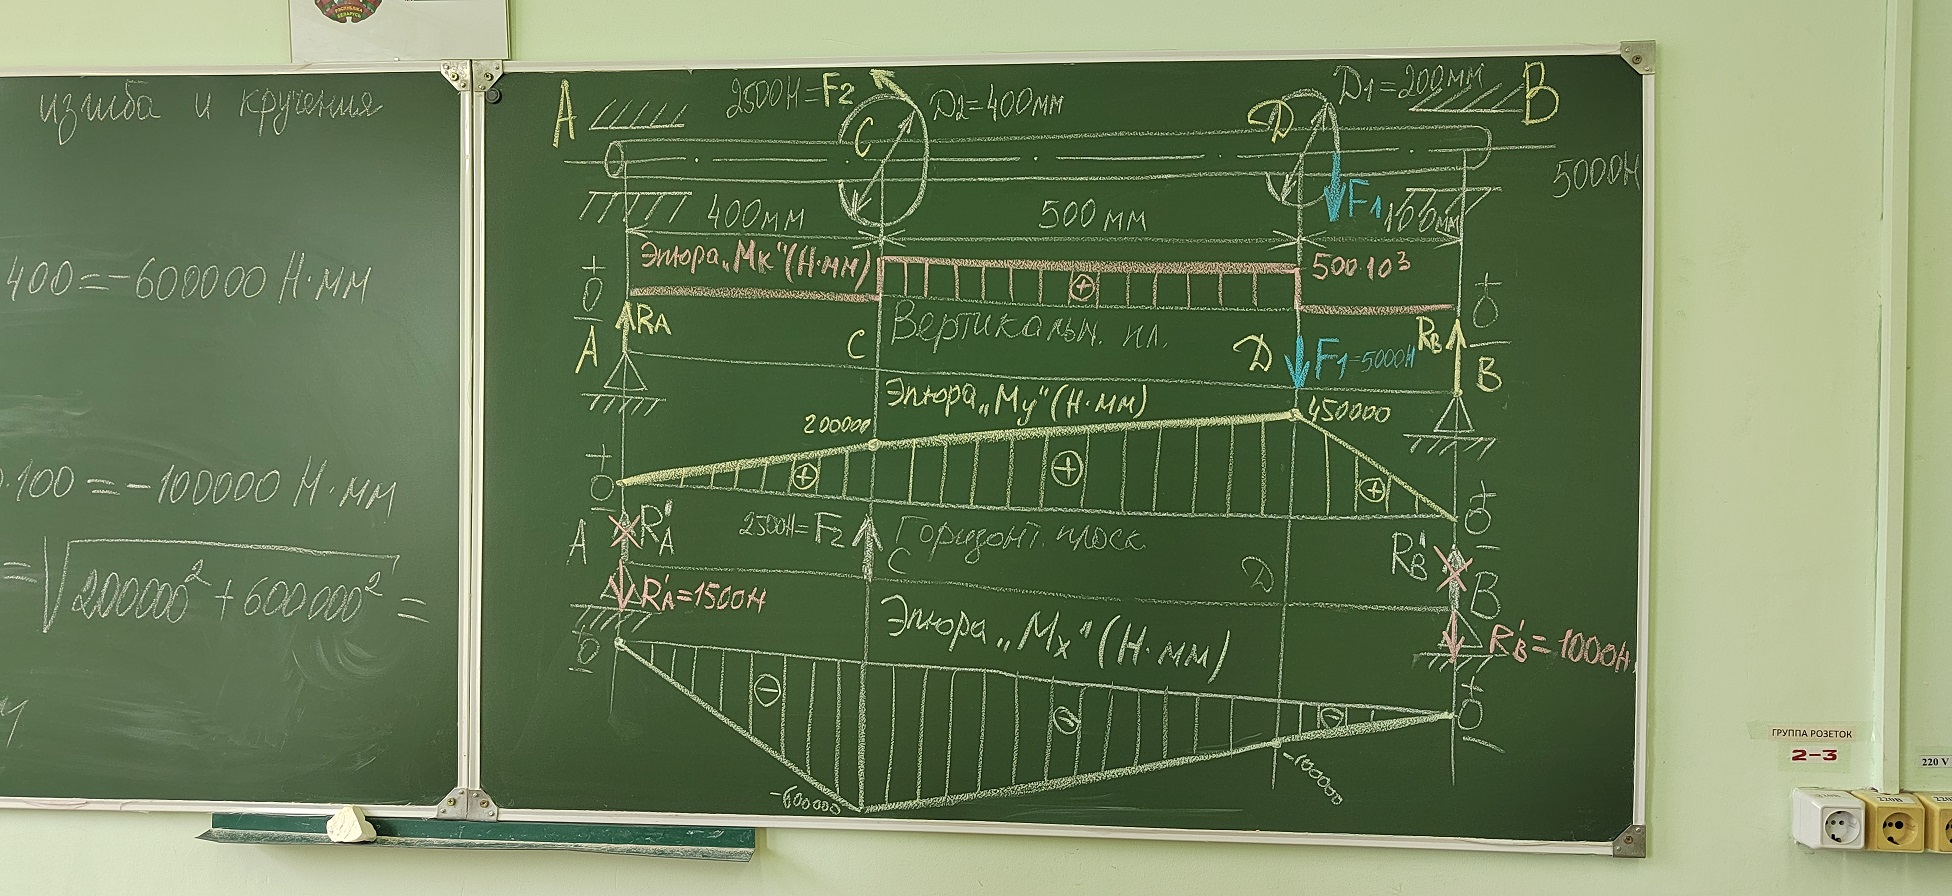 РЕСПУБЛІКА
БЕЛАРУСЬ
изгиба и кручения
400 = -600000 Н·мм
0·100 = -100000 Н·мм
= √200000² + 600000² =
A
2500Н = F2
C
D2 = 400мм
D
D1 = 200мм
B
5000Н
F1
400мм
500 мм
100мм
Эпюра „Mк" (Н·мм)
+
0
-
⊕
500·10³
+
0
-
RA
Вертикальн. пл.
RB
A
C
D
F1 = 5000Н
B
Эпюра „My" (Н·мм)
200000
450000
+
0
-
⊕
⊕
⊕
+
0
-
A
R'A
2500Н = F2
Горизонт. плоск.
C
D
R'B
B
R'A = 1500Н
Эпюра „Mx" (Н·мм)
R'B = 1000Н
+
0
-
⊖
⊖
⊖
+
0
-
-600000
-100000
ГРУППА РОЗЕТОК
2-3
220 V
220В